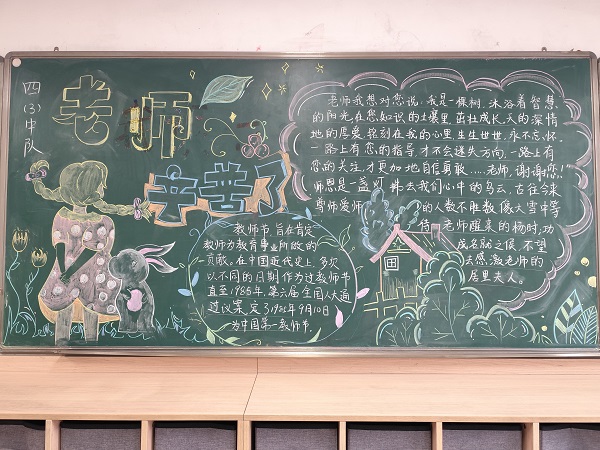 四(3)中队
老师
辛苦了
教师节,旨在肯定
教师为教育事业所做的
贡献。在中国近代史上,多次
以不同的日期作为过教师节
直至1985年,第六届全国人大通
过议案,定了1985年9月10日
为中国第一教师节.
老师我想对您说:我是一棵树,沐浴着智慧
的阳光,在您知识的土壤里,茁壮成长,天的深情
地的厚爱,轮刻在我的心里,生生世世,永不忘怀.
一路上有您的指导,才不会迷失方向,一路上有
您的关注,才更加地自信勇敢……老师,谢谢您!!
师恩是一盏灯,拂去我们心中的乌云,古往今来
尊师爱师的人数不胜数,像大雪中等
侍老师醒来的杨时,功
成名就之候,不望
去感激老师的
居里夫人。